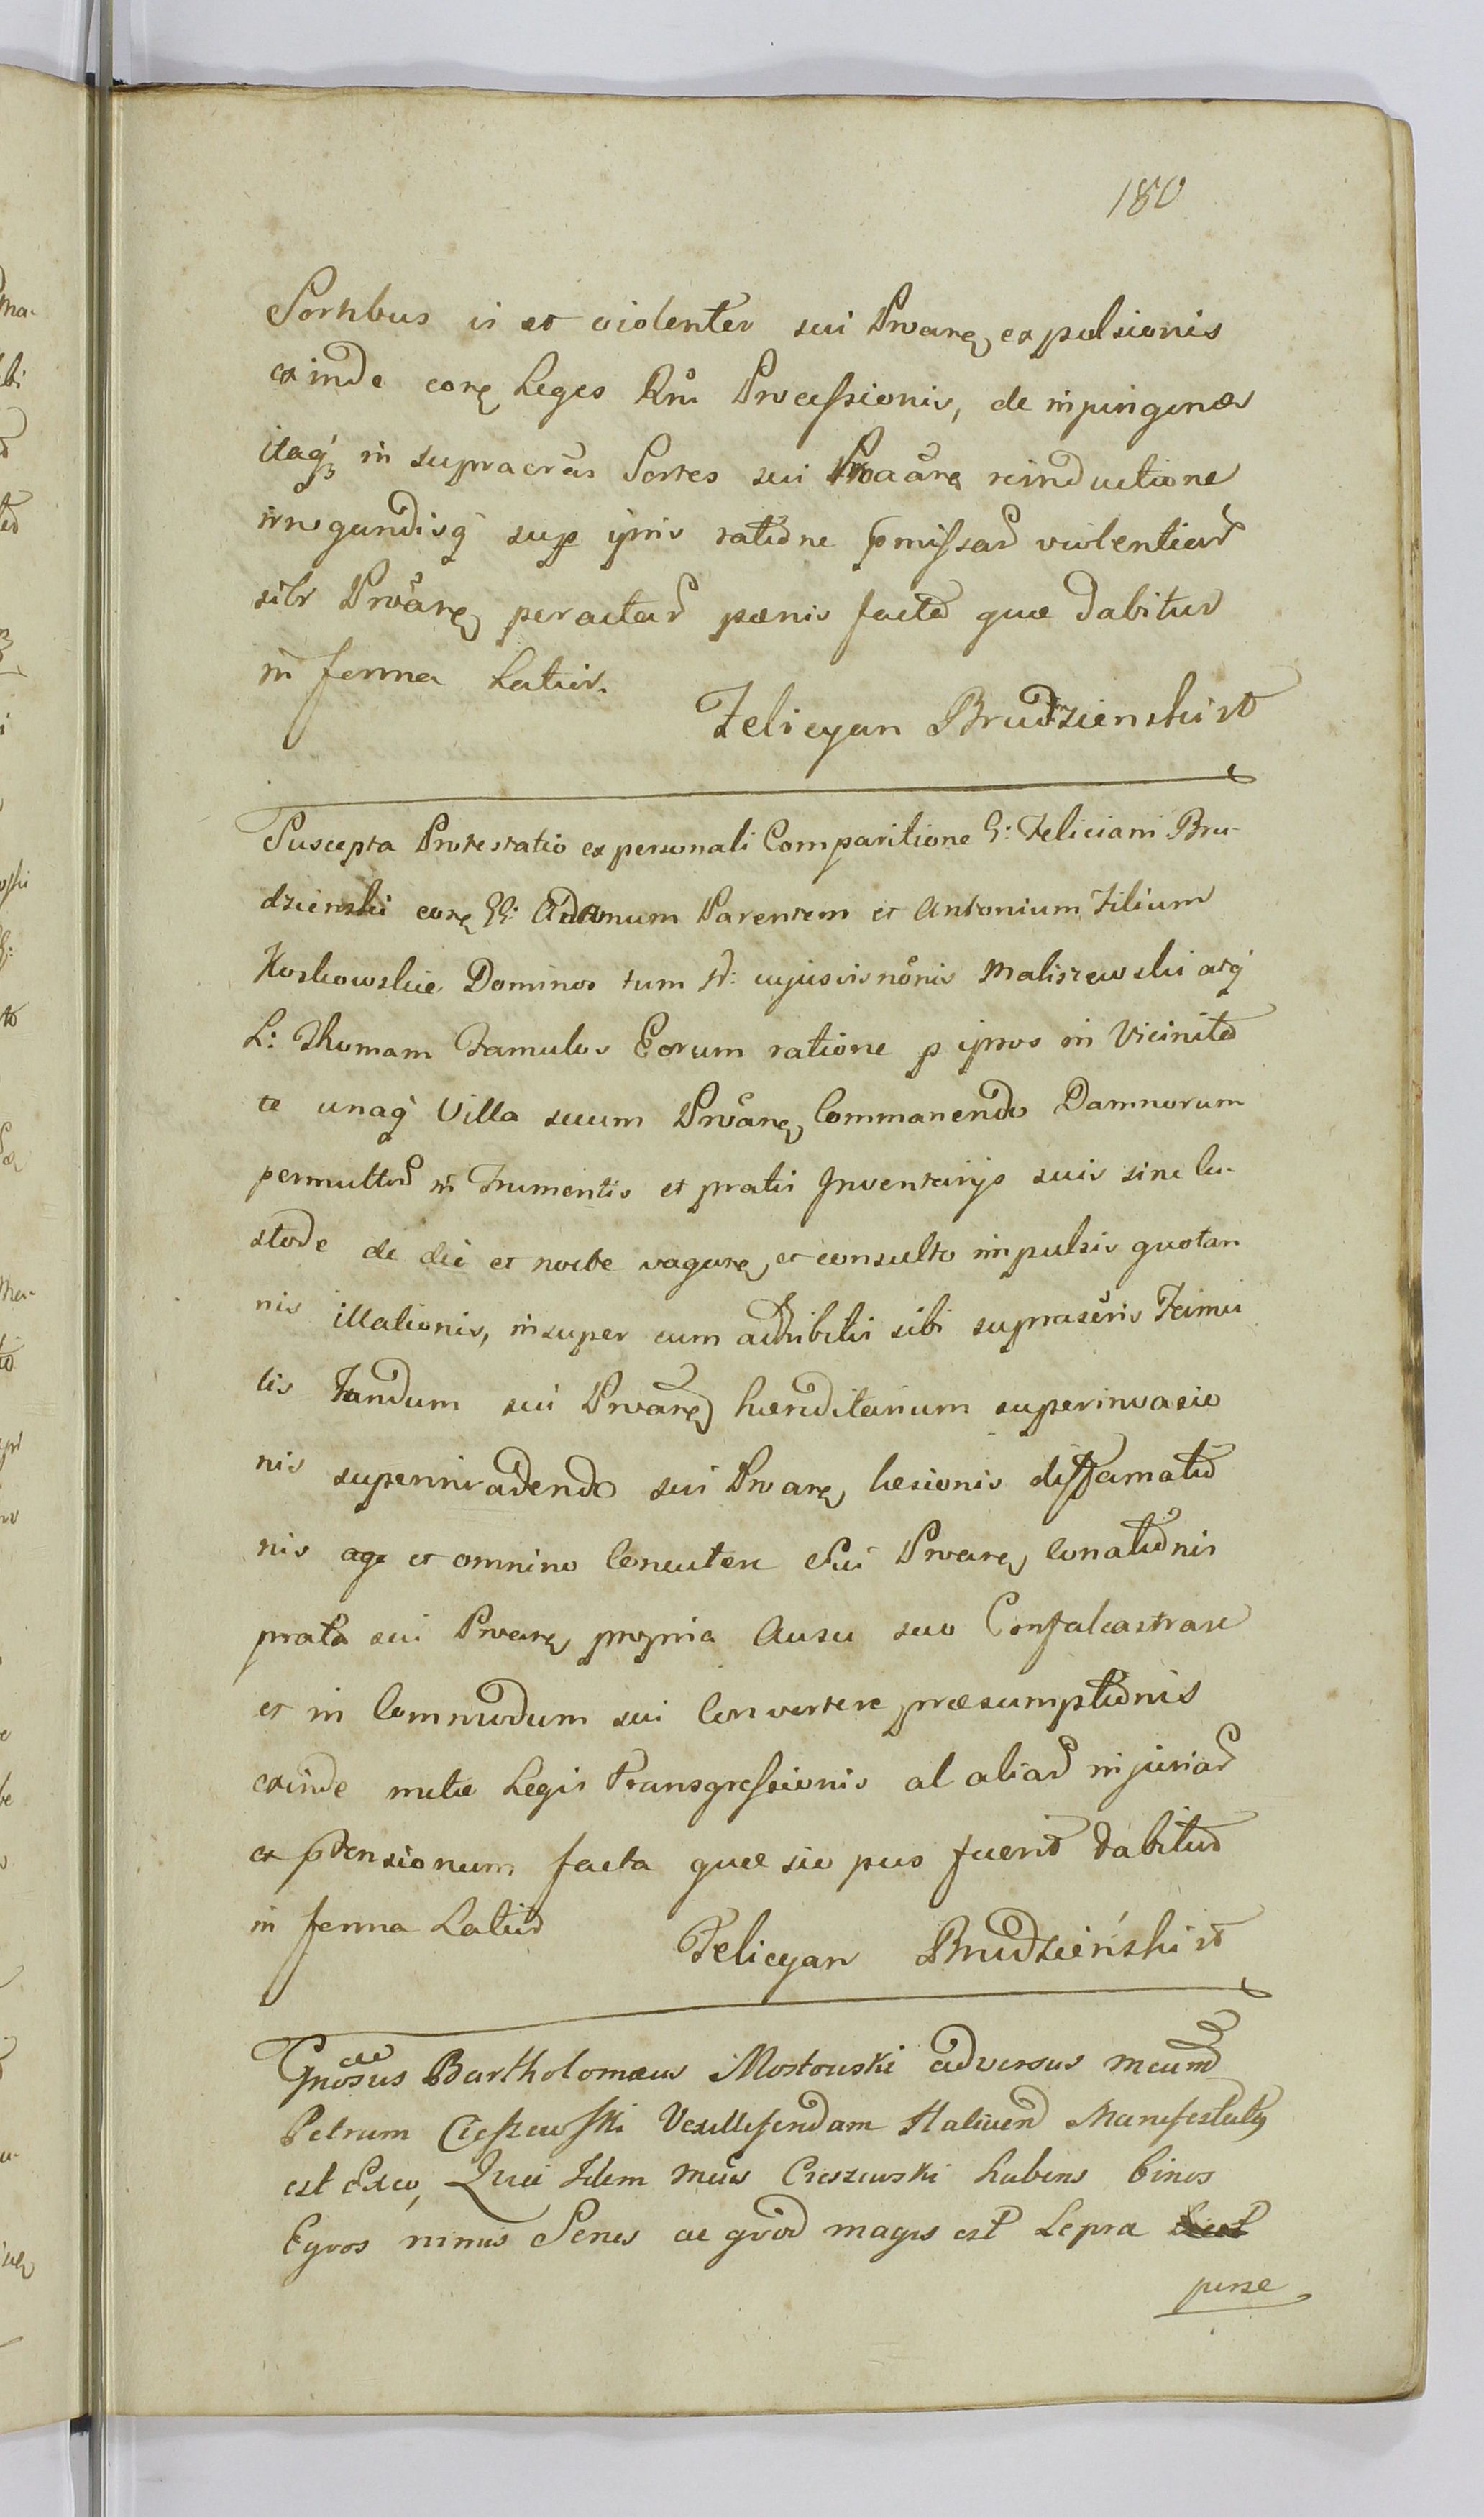 180
Sortibus vi et violenter sui Proarg expulsionis
exinde corg Leges Rni Processionis, de inpingenda
itaq in supracras Sortes sui Proarg reinductione
irrogandisq sup ipsis ratione pmissar violentiar
sibi Proarg peractar poenis facta quae dabitur
in forma Latiori.
Felicyan Brudzienski
Suscepta Protestatio ex personali Comparitione G: Feliciani Bru-
dzienski corg GG: Adamum Parentem et Antonium Filium
Koskowskie Dominos tum N: cujusvis nonis Maliszewski atq
L: Thomam Famulos Eorum ratione p ipsos in Vicinita
te unaq Villa suum Proarg Commanendo Damnorum
permultor in Frumentis et pratis Inventarijs suis sine Cu-
stode de die et nocte vagarg et consulto impulsis quotan
nis illationis, insuper cum adhibitis sibi supraseris Famu
lis Fundum sui Proarg haereditarium superinvasio
nis superinvadendo sui Proarg laesionis diffamatio
nis age et omnino Concutere sui Proarg Conationis
prata sui Proarg propria Ausu suo Confalcastrare
et in Commodum sui Convertere praesumptionis
exinde mulctae Legis Transgressionis al aliar injuriar
ex ptensionum facta quae sic pus fuerit dabitur
in forma Latiori
Felicyan Brudzieński
Gnosus Bartholomaeus Mostowski adversus meum
Petrum Cieszewski Manifestatg
est Exeo, Quia Idem meus Cieszewski habens binos
Eqvos nimis Senes ac qvod magis est Lepra
perse